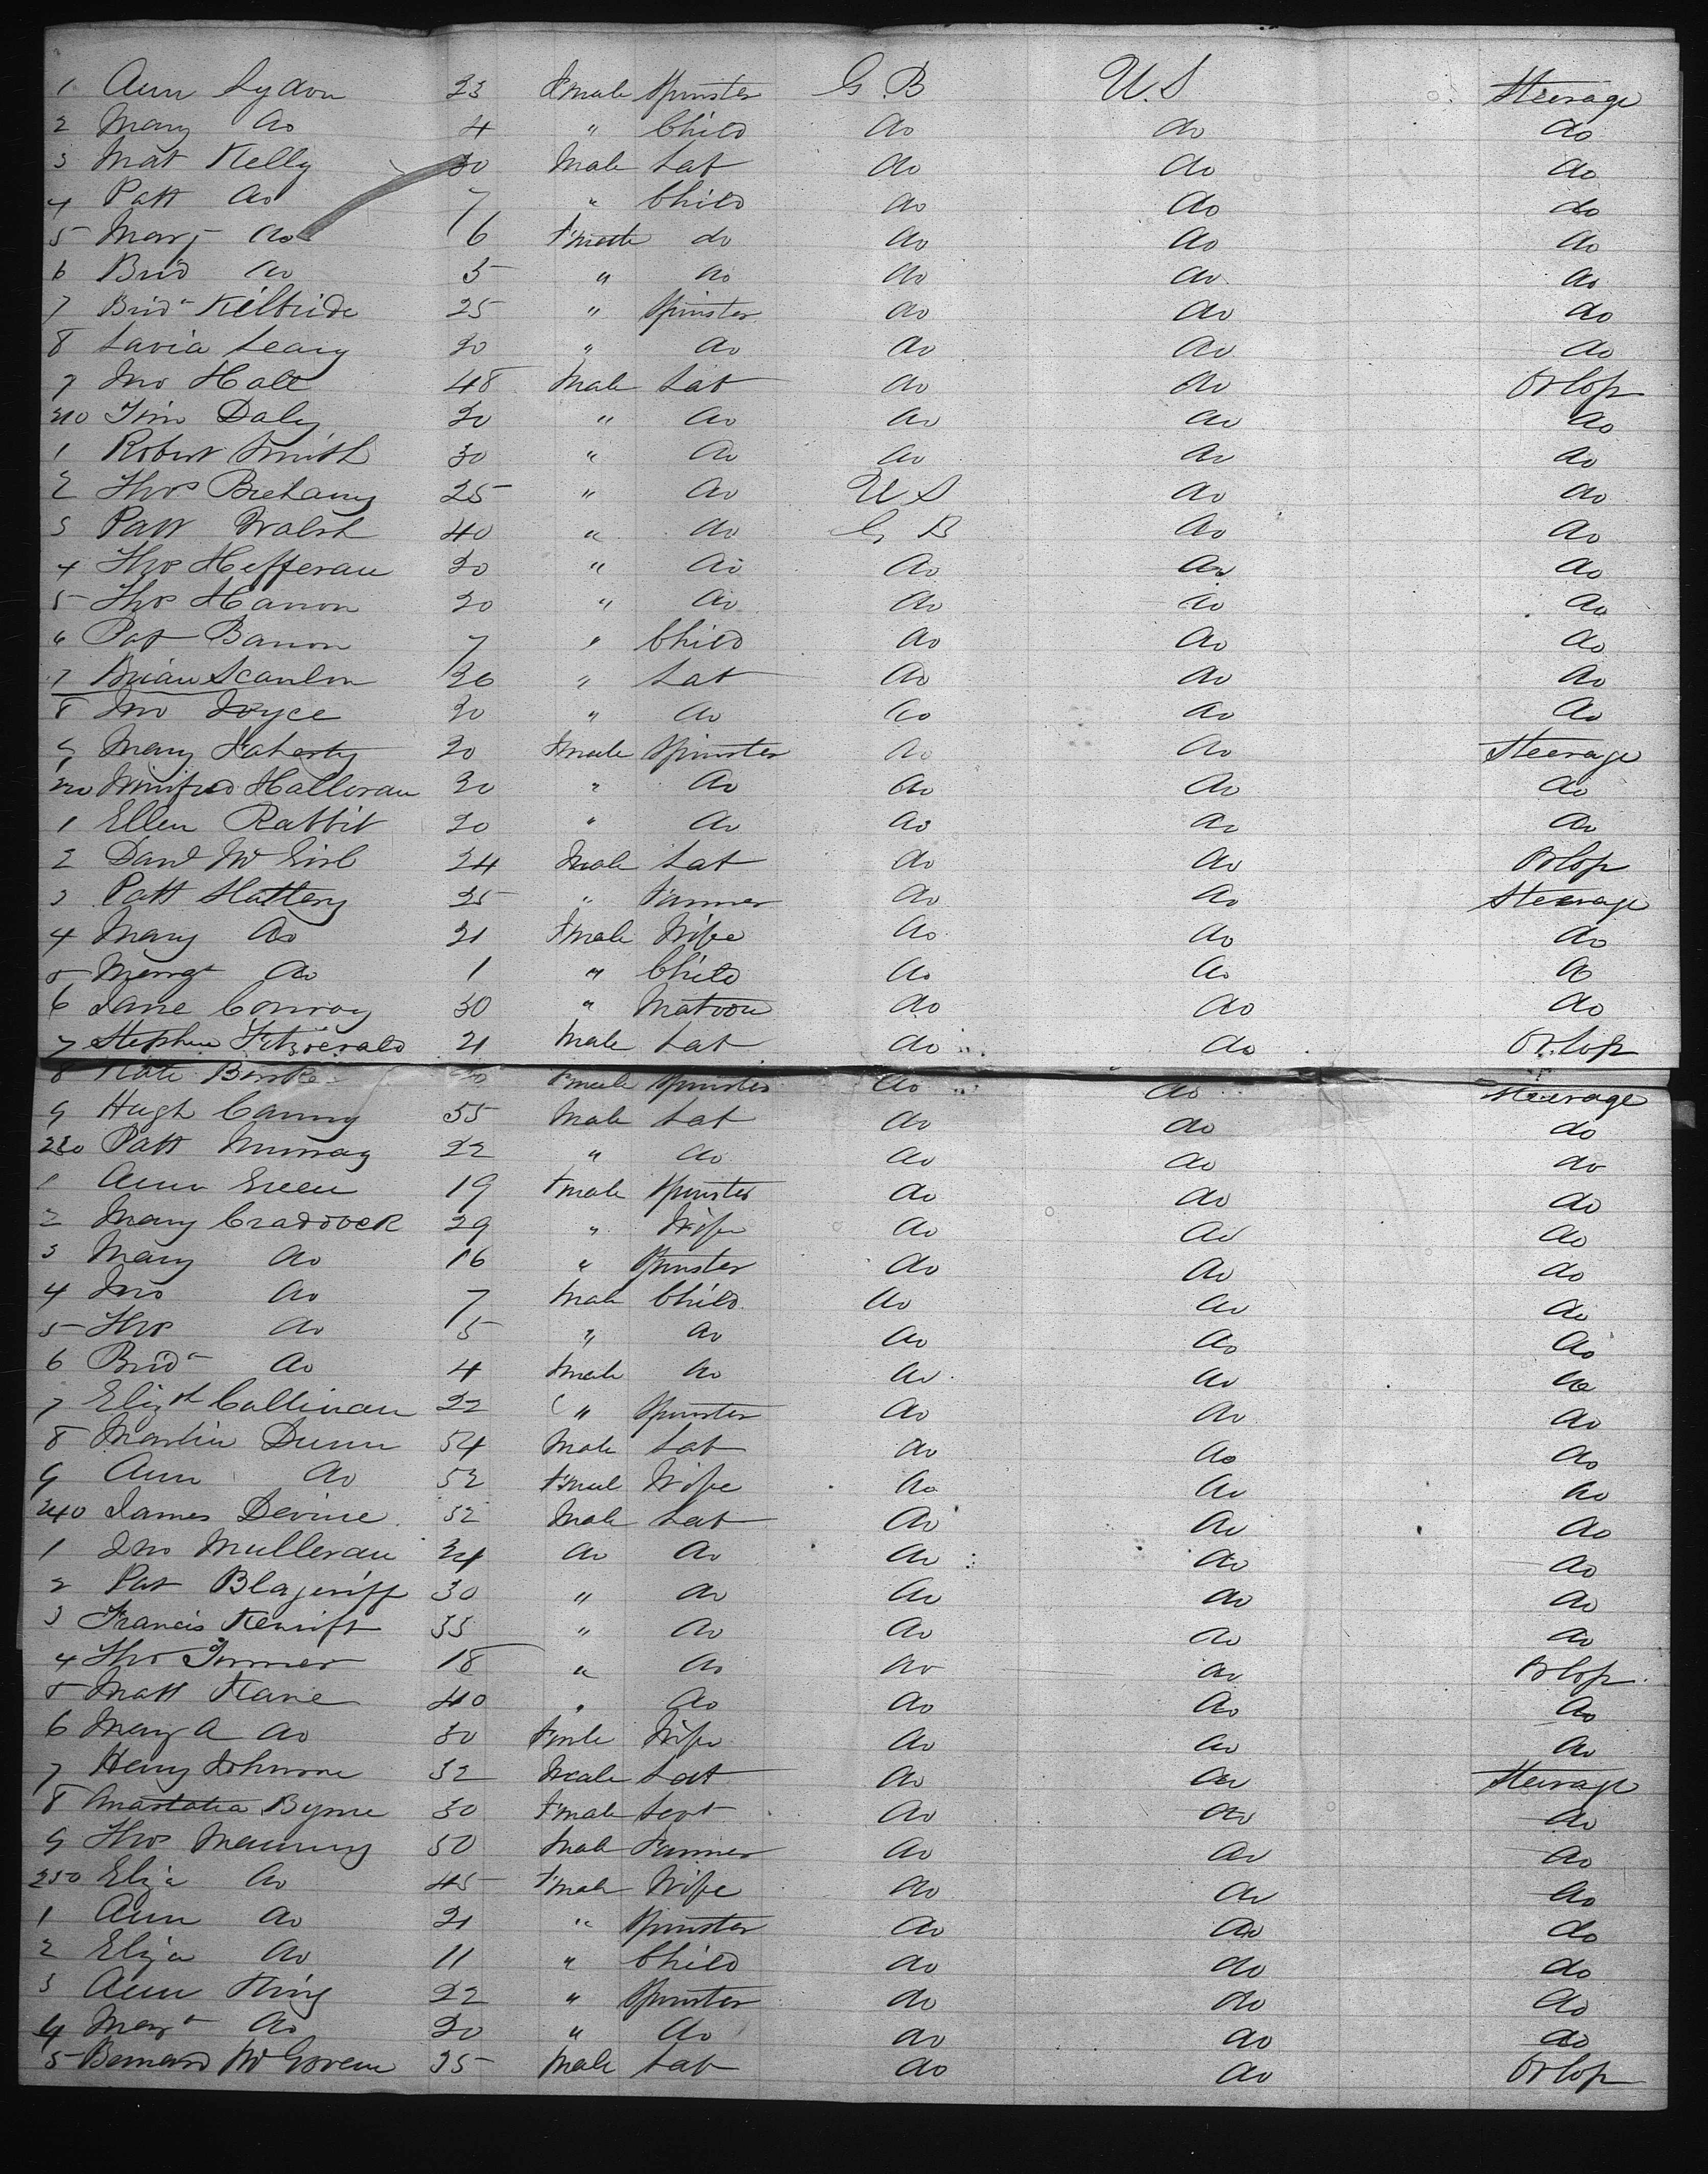 1 Ann Lydon 23 Female Spinster G.B U.S Steerage
2 Mary do 4 " Child do do do
3 Mat Kelly 30 Male Lab do do do
4 Patt do 7 " Child do do do
5 Mary do 6 Female do do do do
6 Brid do 5 " do do do do
7 Brid Kilbride 25 " Spinster do do do
8 Lavia Leary 20 " do do do do
9 Jno Hall 48 Male Lab do do Orlop
210 Tim Daly 20 " do do do do
1 Robert Smith 30 " do do do do
2 Thos 25 " do U S do do
3 Patt Walsh 40 " do G B do do
4 Thos Hefferan 20 " do do do do
5 Thos 20 " do do do do
6 Pat 7 " Child do do do
7 Brian Scanlon 36 " Lab do do do
8 Jno Joyce 20 " do do do do
9 Mary Faherty 20 Female Spinster do do Steerage
220 Winifred Halloran 20 " do do do do
1 Ellen Rabbit 20 " do do do do
2 Danl 24 Male Lab do do Orlop
3 Patt Slattery 25 " Farmer do do Steerage
4 Mary do 21 Female Wife do do do
5 Margt do 1 " Child do do do
6 Jane Conroy 30 " Matron do do do
7 Stephen Fitzgerald 21 Male Lab do do Orlop
8 Kate Burke 20 Female Spinster do do Steerage
9 Hugh Canny 55 Male Lab do do do
230 Patt Murray 22 " do do do do
1 Ann Green 19 Female Spinster do do do
2 Mary Craddock 29 " Wife do do do
3 Mary do 16 " Spinster do do do
4 Jno do 7 Male Child do do do
5 Thos do 5 " do do do do
6 Brid do 4 Female do do do do
7 Elizth Callinan 22 " Spinster do do do
8 Martin Dunn 54 Male Lab do do do
9 Ann do 52 Female Wife do do do
240 James Devine 52 Male Lab do do do
1 Jno Mulleran 24 do do do do do
2 Pat 30 " do do do do
3 Francis 33 " do do do do
4 Thos Turner 18 " do do do Orlop
5 Matt Kane 40 " do do do do
6 Mary A do 30 Female Wife do do do
7 Henry Johnson 32 Male Lab do do Steerage
8 Anastatia Byrne 30 Female do do do
9 Thos Manning 50 Male Farmer do do do
250 Eliza do 45 Female Wife do do do
1 Ann do 21 " Spinster do do do
2 Eliza do 11 " Child do do do
3 Ann King 22 " Spinster do do do
4 Margt do 20 " do do do do
5 Bernard McGovern 25 Male Lab do do Orlop